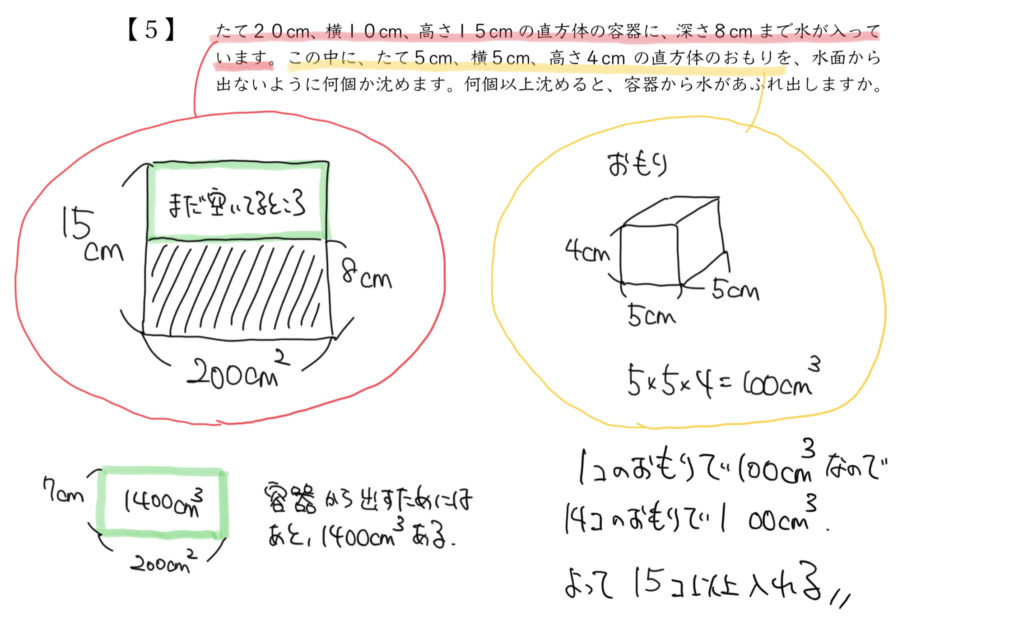 【5】
たて20cm、横10cm、高さ15cmの直方体の容器に、深さ8cmまで水が入って
います。この中に、たて5cm、横5cm、高さ4cm の直方体のおもりを、水面から
出ないように何個か沈めます。何個以上沈めると、容器から水があふれ出しますか。
まだ空いてるところ
15
cm
8cm
200cm²
おもり
4cm
5cm
5cm
5×5×4=100cm³
7cm
1400cm³
200cm²
容器から出すためには
あと、1400cm³ある.
1コのおもりで100cm³なので
14コのおもりで1 00cm³.
よって 15コ以上入れる〃